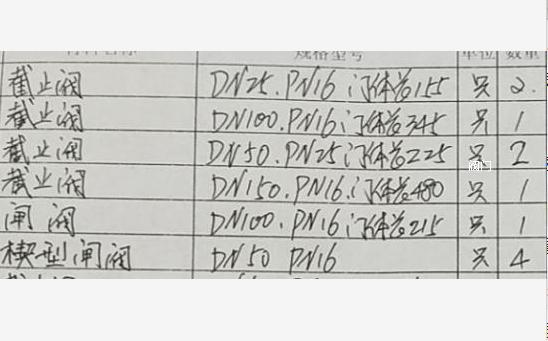 材料名称 规格型号 单位 数量
截止阀 DN25.PN16 门体总155 只 2.
截止阀 DN100.PN16门体总345 只 1
截止阀 DN50.PN25门体总225 只 2
截止阀 DN150.PN16.门体总480 只 1
闸 阀 DN100.PN16门体总215 只 1
楔型闸阀 DN50 PN16 只 4